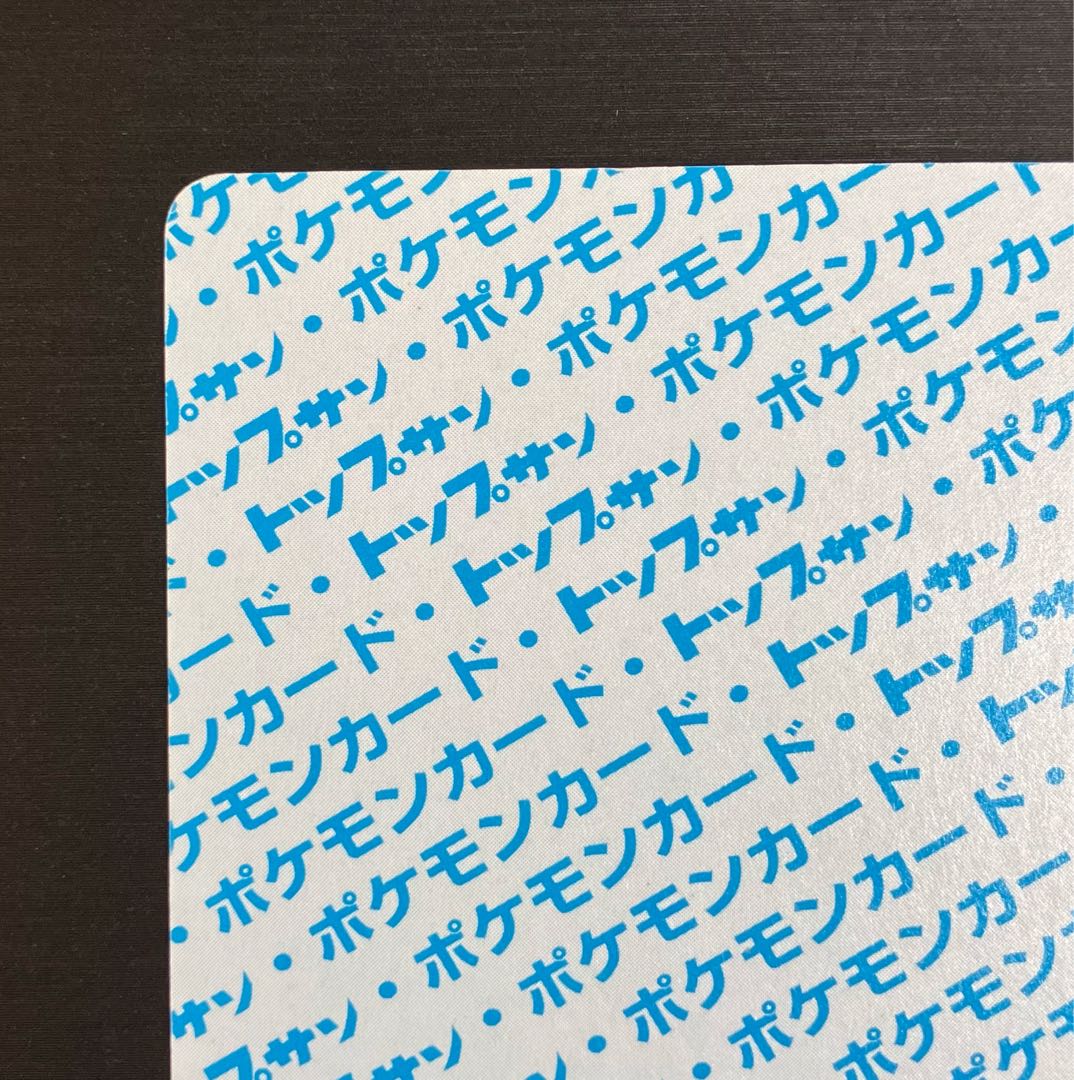 ポケモ
ン・ポケモン
プサン・ポケモン
トップサン・ポケモンカ
・トップサン・ポケモンカー
ード・トップサン・ポケモンカード
ンカード・トップサン・ポケモンカー
ケモンカード・トップサン・ポケモン
・ポケモンカード・トップサン・ポケ
サン・ポケモンカード・トップサン・
プサン・ポケモンカード・トップサ
ップサン・ポケモンカード・トッ
・ポケモンカード・
・ポケモンカー
・ポケモン
ケ